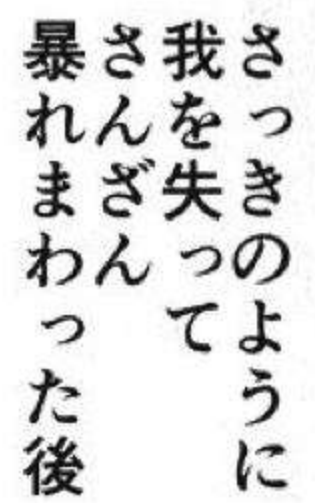 さっきのように
我を失って
さんざん
暴れまわった後